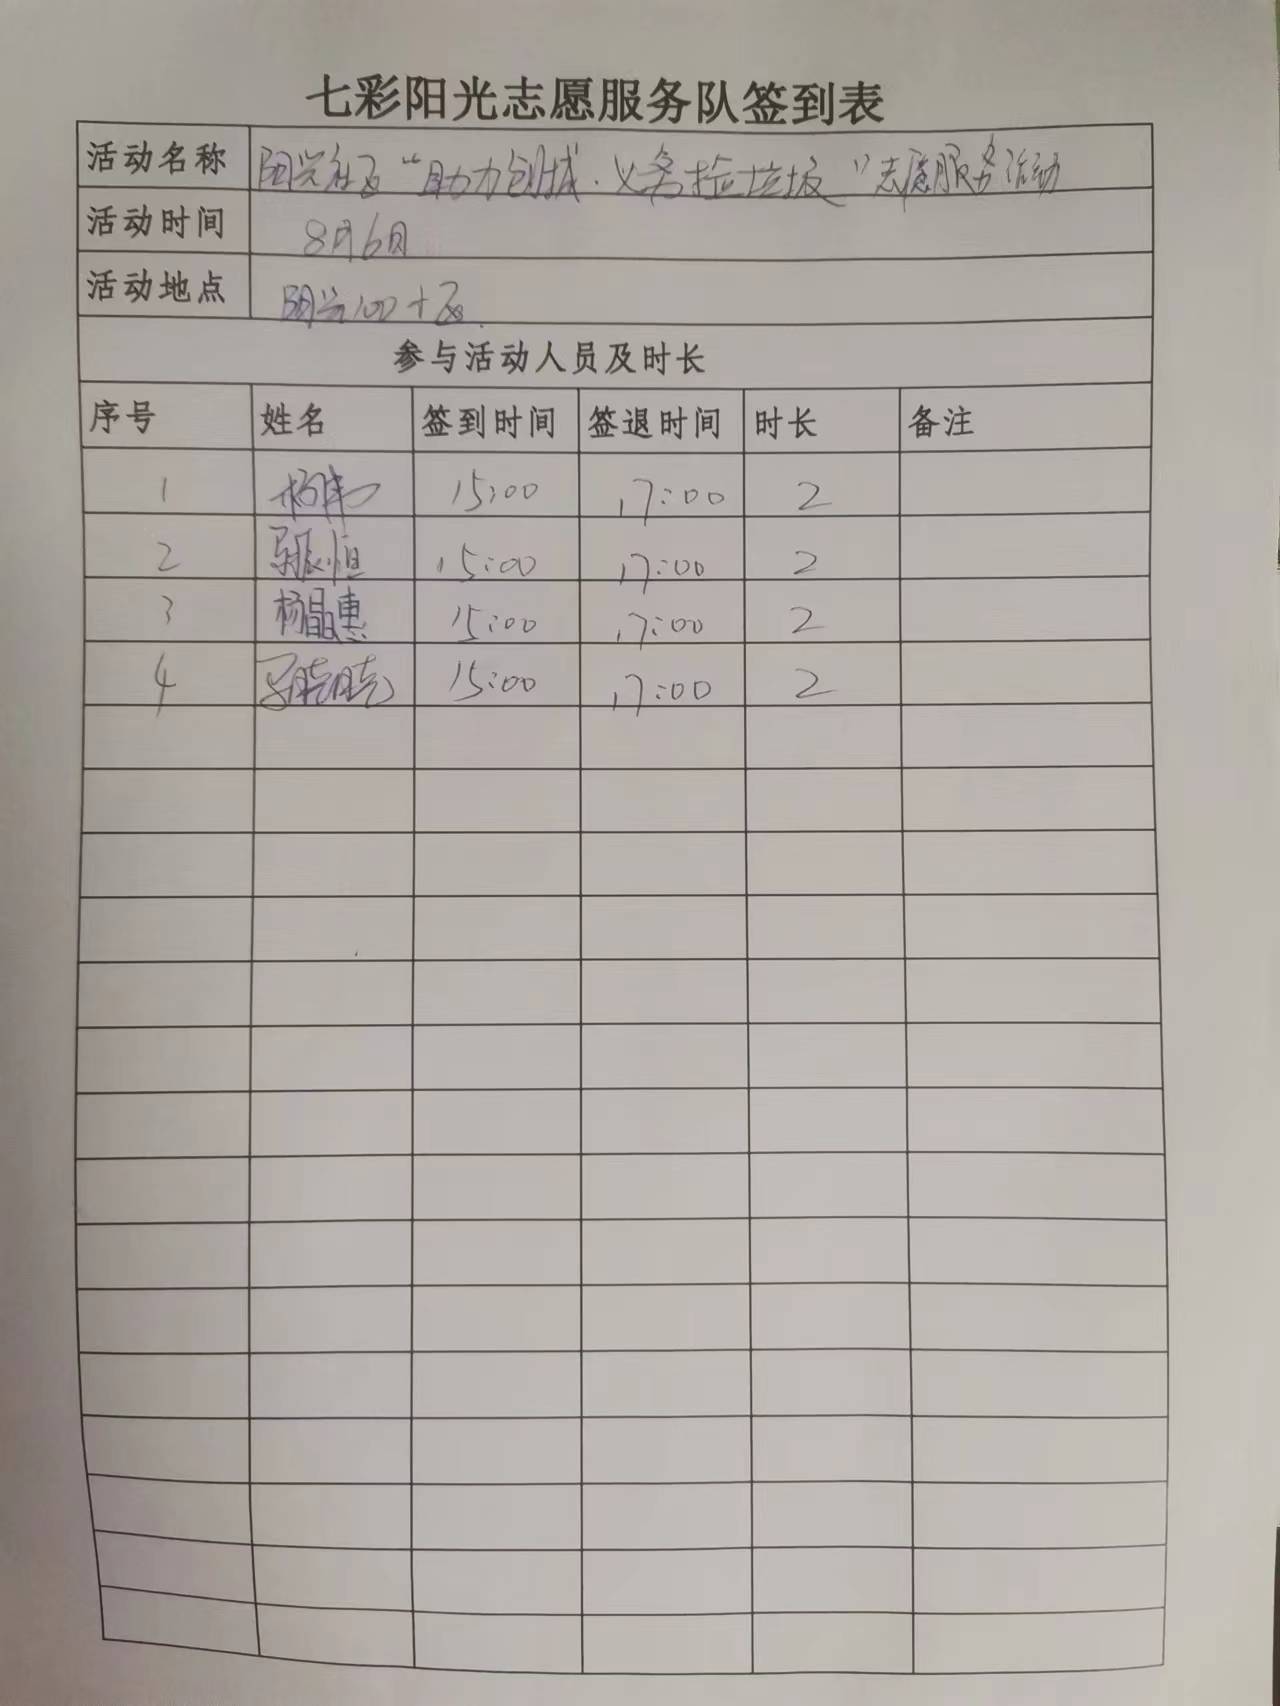 七彩阳光志愿服务队签到表
活动名称 阳兴社区“助力创城·义务捡垃圾”志愿服务活动
活动时间 8月6日
活动地点 阳兴100十区.
参与活动人员及时长
序号 姓名 签到时间 签退时间 时长 备注
1 杨伟 15:00 17:00 2
2 振恒 15:00 17:00 2
3 杨晶惠 15:00 17:00 2
4 15:00 17:00 2